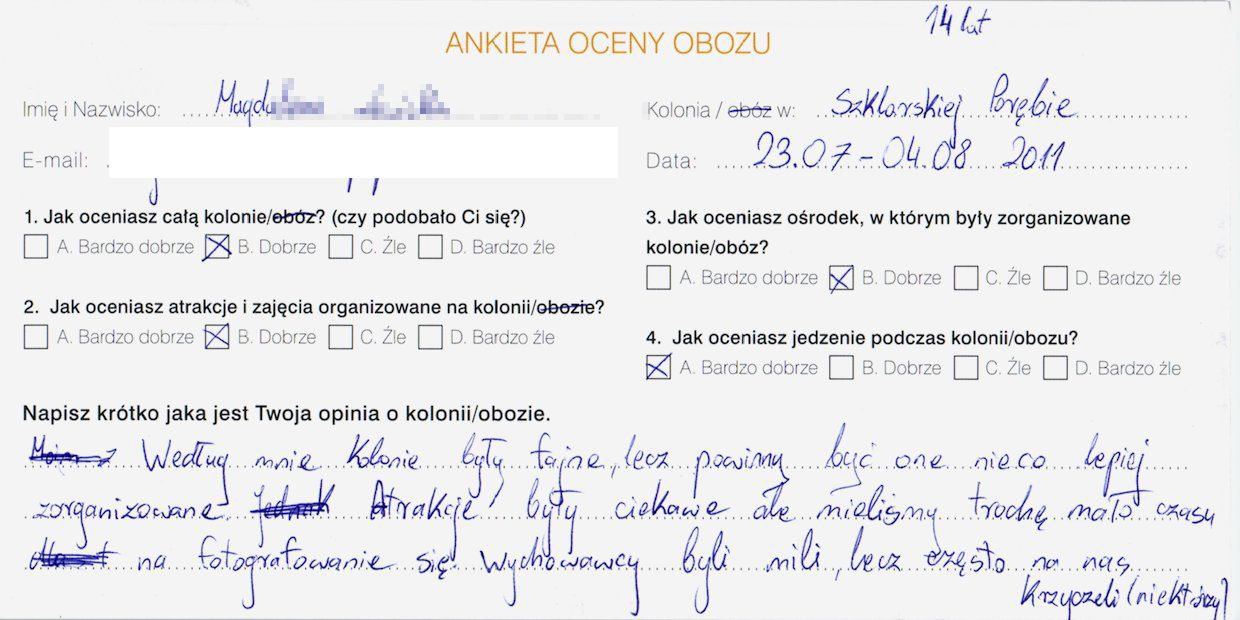 14 lat
ANKIETA OCENY OBOZU
Imię i Nazwisko: Magd
Kolonia / obóz w: Szklarskiej Porębie
E-mail:
Data: 23.07-04.08 2011
1. Jak oceniasz całą kolonie/obóz? (czy podobało Ci się?)
A. Bardzo dobrze B. Dobrze C. Źle D. Bardzo źle
2. Jak oceniasz atrakcje i zajęcia organizowane na kolonii/obozie?
A. Bardzo dobrze B. Dobrze C. Źle D. Bardzo źle
3. Jak oceniasz ośrodek, w którym były zorganizowane
kolonie/obóz?
A. Bardzo dobrze B. Dobrze C. Źle D. Bardzo źle
4. Jak oceniasz jedzenie podczas kolonii/obozu?
A. Bardzo dobrze B. Dobrze C. Źle D. Bardzo źle
Napisz krótko jaka jest Twoja opinia o kolonii/obozie.
Według mnie kolonie były fajne, lecz powinny być one nieco lepiej
zorganizowane. Jednak Atrakcje były ciekawe ale mieliśmy trochę mało czasu
na fotografowanie się. Wychowawcy byli mili, lecz często na nas
krzyczeli (niektórzy)